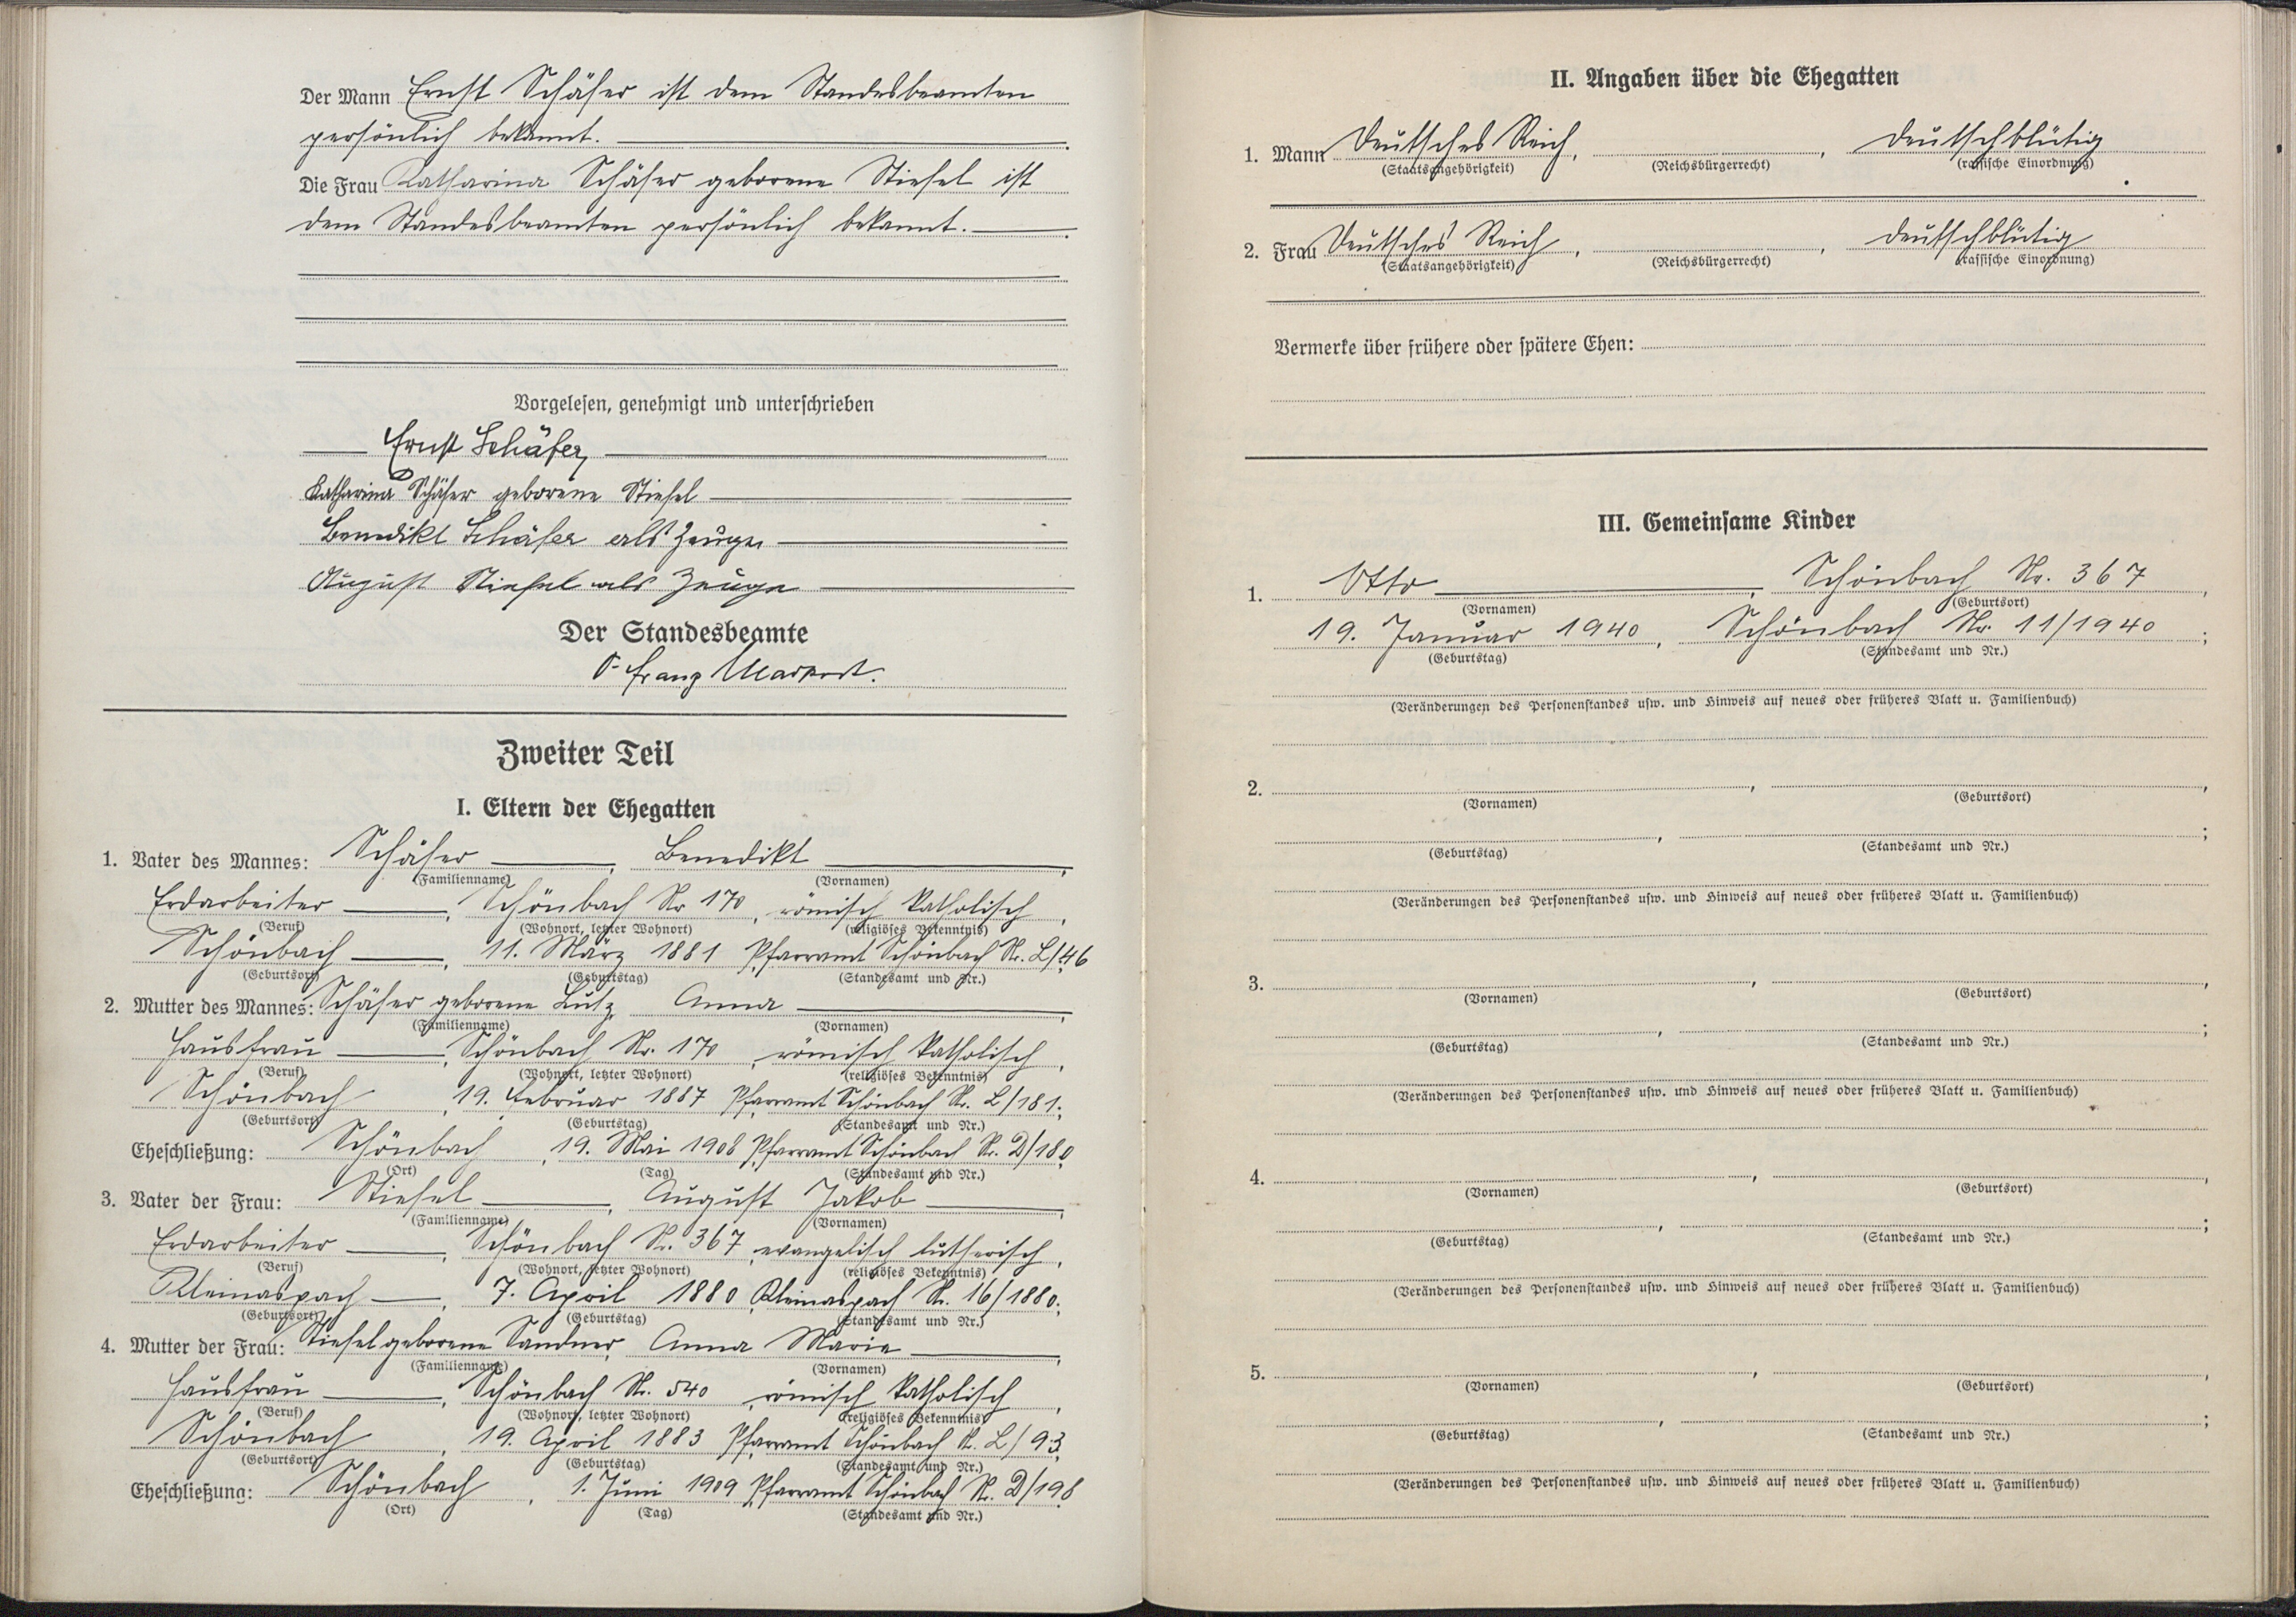 Der Mann Ernst Schäfer ist dem Standesbeamten
persönlich bekannt.
Die Frau Katharina Schäfer geborene Stiefel ist
dem Standesbeamten persönlich bekannt.
Vorgelesen, genehmigt und unterschrieben
Ernst Schäfer,
Katharina Schäfer geborene Stiefel
Benedikt Schäfer als Zeuge
August Stiefel als Zeuge
Der Standesbeamte
Franz
Zweiter Teil
I. Eltern der Ehegatten
1. Vater des Mannes: Schäfer, Benedikt,
(Familienname) (Vornamen)
Erdarbeiter, Schönbach Nr 170, römisch katholisch,
(Beruf) (Wohnort, letzter Wohnort) (religiöses Bekenntnis)
Schönbach, 11. März 1881, Pfarramt Schönbach Nr. L/46
(Geburtsort) (Geburtstag) (Standesamt und Nr.)
2. Mutter des Mannes: Schäfer geborene Lutz, Anna,
(Familienname) (Vornamen)
Hausfrau, Schönbach Nr. 170, römisch katholisch,
(Beruf) (Wohnort, letzter Wohnort) (religiöses Bekenntnis)
Schönbach, 19. Februar 1887 Pfarramt Schönbach Nr. L/181;
(Geburtsort) (Geburtstag) (Standesamt und Nr.)
Eheschließung: Schönbach, 19. Mai 1908, Pfarramt Schönbach Nr. D/180
(Ort) (Tag) (Standesamt und Nr.)
3. Vater der Frau: Stiefel, August Jakob,
(Familienname) (Vornamen)
Erdarbeiter, Schönbach Nr. 367, evangelisch lutherisch,
(Beruf) (Wohnort, letzter Wohnort) (religiöses Bekenntnis)
Kleinaspach, 7. April 1880, Kleinaspach Nr. 16/1880;
(Geburtsort) (Geburtstag) (Standesamt und Nr.)
4. Mutter der Frau: Stiefel geborene Sandner, Anna Maria,
(Familienname) (Vornamen)
Hausfrau, Schönbach Nr. 540, römisch katholisch,
(Beruf) (Wohnort, letzter Wohnort) (religiöses Bekenntnis)
Schönbach, 19. April 1883 Pfarramt Schönbach Nr. L/93;
(Geburtsort) (Geburtstag) (Standesamt und Nr.)
Eheschließung: Schönbach, 1. Juni 1909, Pfarramt Schönbach Nr. D/198
(Ort) (Tag) (Standesamt und Nr.)
II. Angaben über die Ehegatten
1. Mann Deutsches Reich, , deutschblütig
(Staatsangehörigkeit) (Reichsbürgerrecht) (rassische Einordnung)
2. Frau Deutsches Reich, , deutschblütig
(Staatsangehörigkeit) (Reichsbürgerrecht) (rassische Einordnung)
Vermerke über frühere oder spätere Ehen:
III. Gemeinsame Kinder
1. Otto, Schönbach Nr. 367,
(Vornamen) (Geburtsort)
19. Januar 1940, Schönbach Nr. 11/1940;
(Geburtstag) (Standesamt und Nr.)
(Veränderungen des Personenstandes usw. und Hinweis auf neues oder früheres Blatt u. Familienbuch)
2. , ,
(Vornamen) (Geburtsort)
, ;
(Geburtstag) (Standesamt und Nr.)
(Veränderungen des Personenstandes usw. und Hinweis auf neues oder früheres Blatt u. Familienbuch)
3. , ,
(Vornamen) (Geburtsort)
, ;
(Geburtstag) (Standesamt und Nr.)
(Veränderungen des Personenstandes usw. und Hinweis auf neues oder früheres Blatt u. Familienbuch)
4. , ,
(Vornamen) (Geburtsort)
, ;
(Geburtstag) (Standesamt und Nr.)
(Veränderungen des Personenstandes usw. und Hinweis auf neues oder früheres Blatt u. Familienbuch)
5. , ,
(Vornamen) (Geburtsort)
, ;
(Geburtstag) (Standesamt und Nr.)
(Veränderungen des Personenstandes usw. und Hinweis auf neues oder früheres Blatt u. Familienbuch)